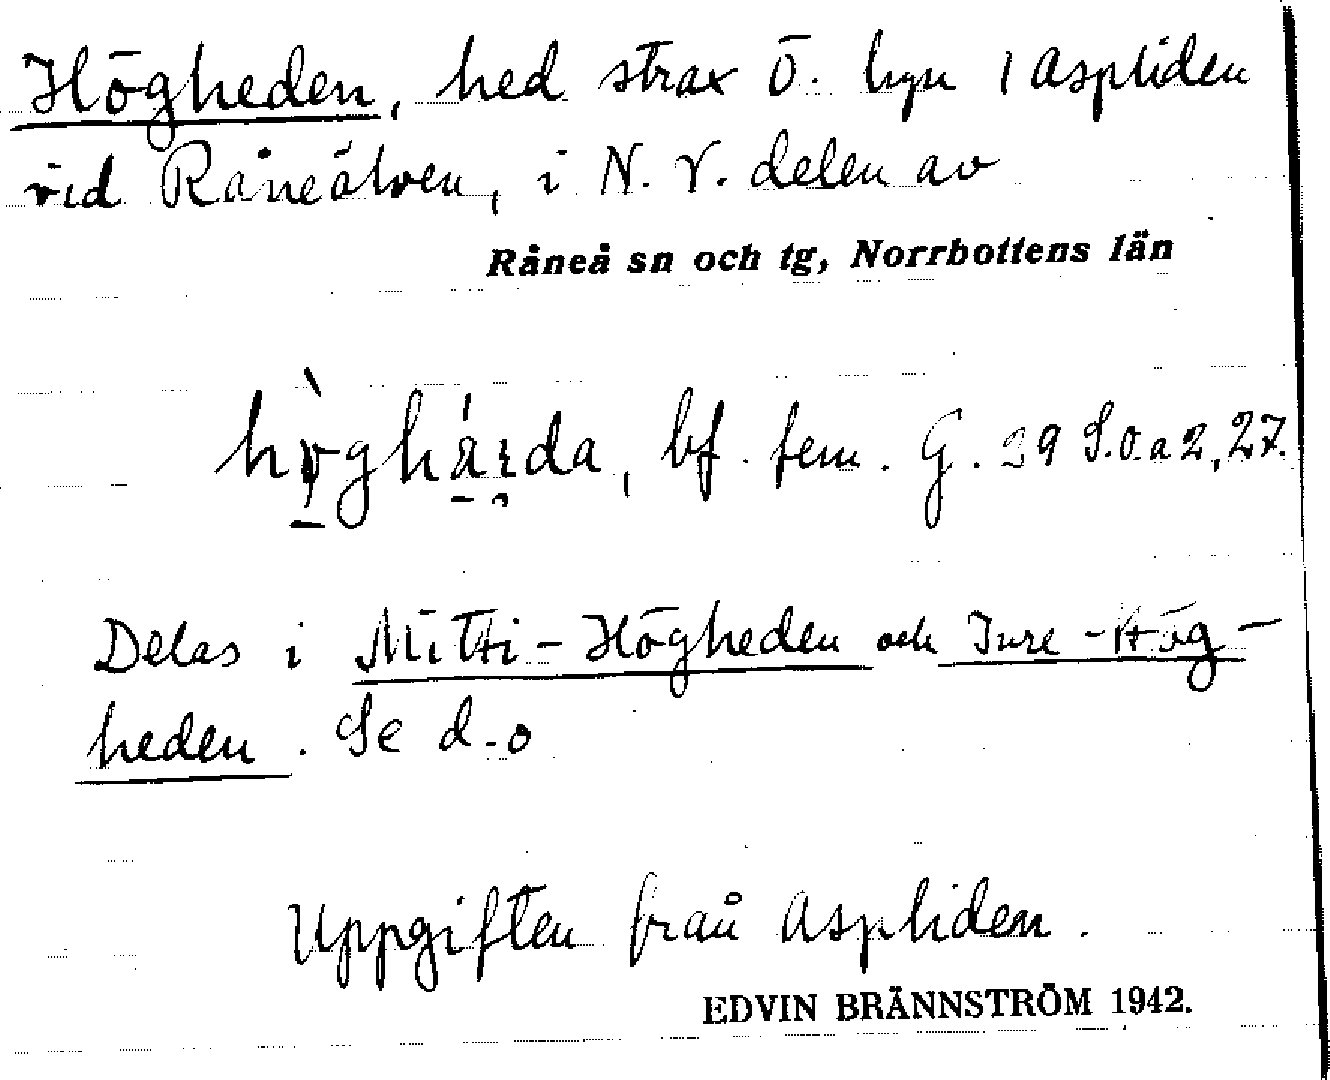 Högheden, hed strax ö. byn i Aspliden
vid Råneälven, i N.V. delen av
Råneå sn och tg, Norrbottens län
bf. fem. G. 39 S.O. a 2, 27.
Delas i Mitti-Högheden och Inre-Hög-
heden. Se d.o
Uppgiften från Aspliden.
EDVIN BRÄNNSTRÖM 1942.